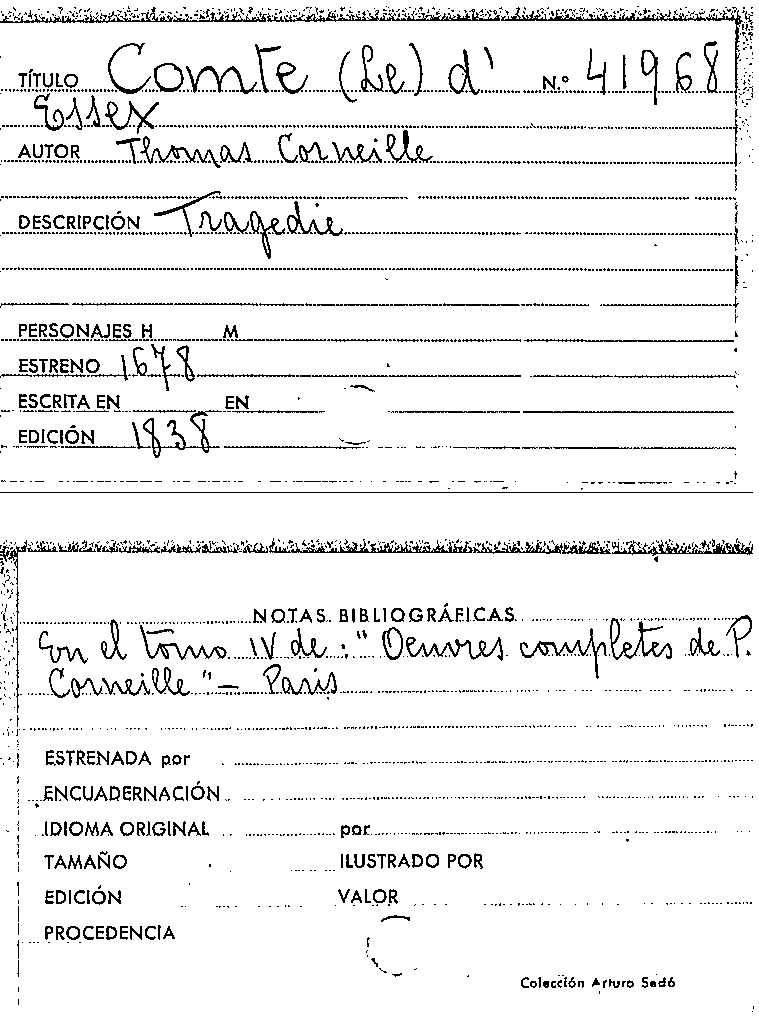 TÍTULO Comte (Le) d' N.º 41968
Essex
AUTOR Thomas Corneille
DESCRIPCIÓN Tragedie
PERSONAJES H M
ESTRENO 1678
ESCRITA EN EN
EDICIÓN 1838
NOTAS BIBLIOGRÁFICAS
En el tomo IV de: "Oeuvres completes de P.
Corneille" - Paris
ESTRENADA por
ENCUADERNACIÓN
IDIOMA ORIGINAL por
TAMAÑO ILUSTRADO POR
EDICIÓN VALOR
PROCEDENCIA
Colección Arturo Sedó